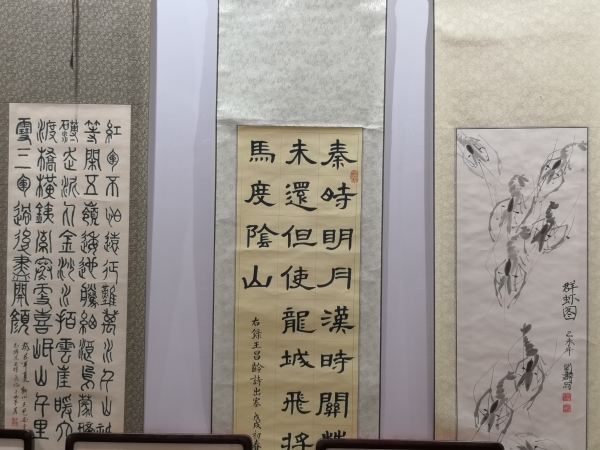 紅軍不怕遠征難萬水千
等閒五嶺逶迤騰細浪烏蒙
磅礴走泥丸金沙水拍雲崖暖大
渡橋橫鐵索寒更喜岷山千里
雪三軍過後盡開顏
秦時明月漢時關
未還但使龍城飛將
馬度陰山
右錄王昌齡詩出塞 戊戌初春
群虾图
乙未年